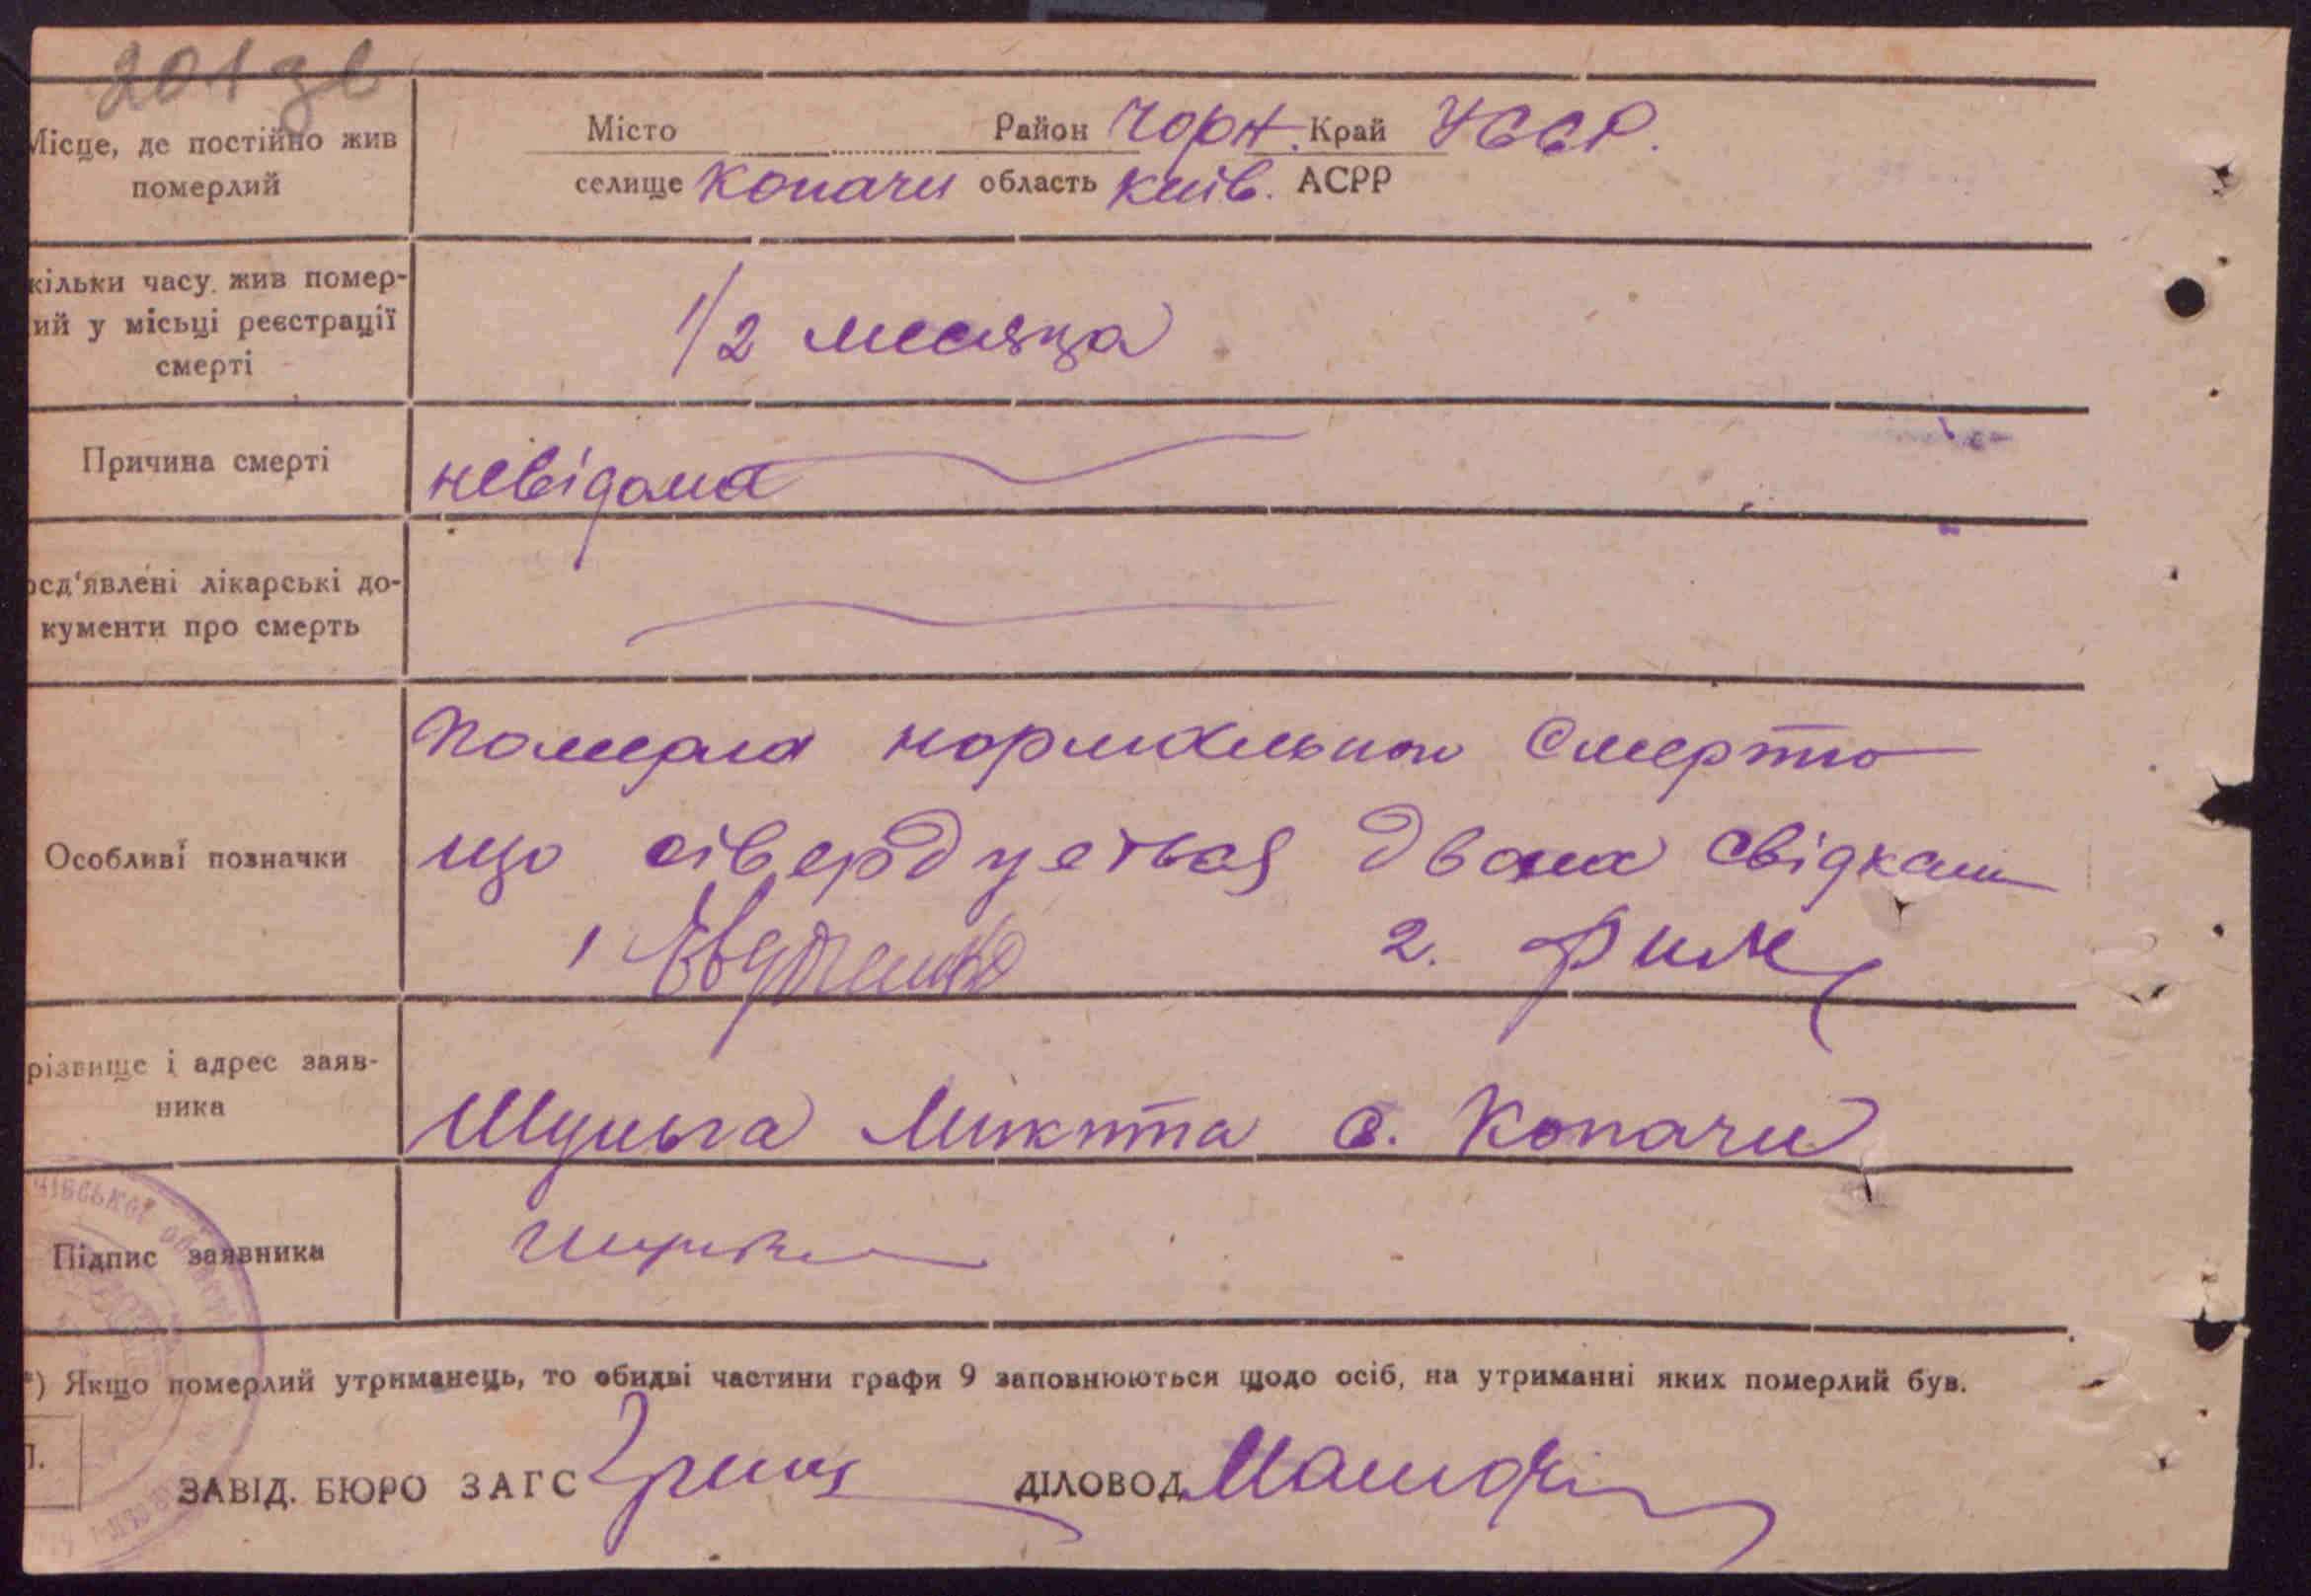 201 зв
Місце, де постійно жив
померлий
Місто Район Чорн. Край УССР.
селище Копачи область Київ. АСРР
кільки часу жив помер-
ий у місьці реєстрації
смерті
1/2 месяца
Причина смерті
невідома
осд'явлені лікарські до-
кументи про смерть
Особливі позначки
Померла нормальною смертю
що сівердуеться двома свідками
1 Евтушенко 2.
різвище і адрес заяв-
ника
Шульга Микита с. Копачи
Підпис заявника
*) Якщо померлий утриманець, то обидві частини графи 9 заповнюються щодо осіб, на утриманні яких померлий був.
П.
ЗАВІД. БЮРО ЗАГС ДІЛОВОД